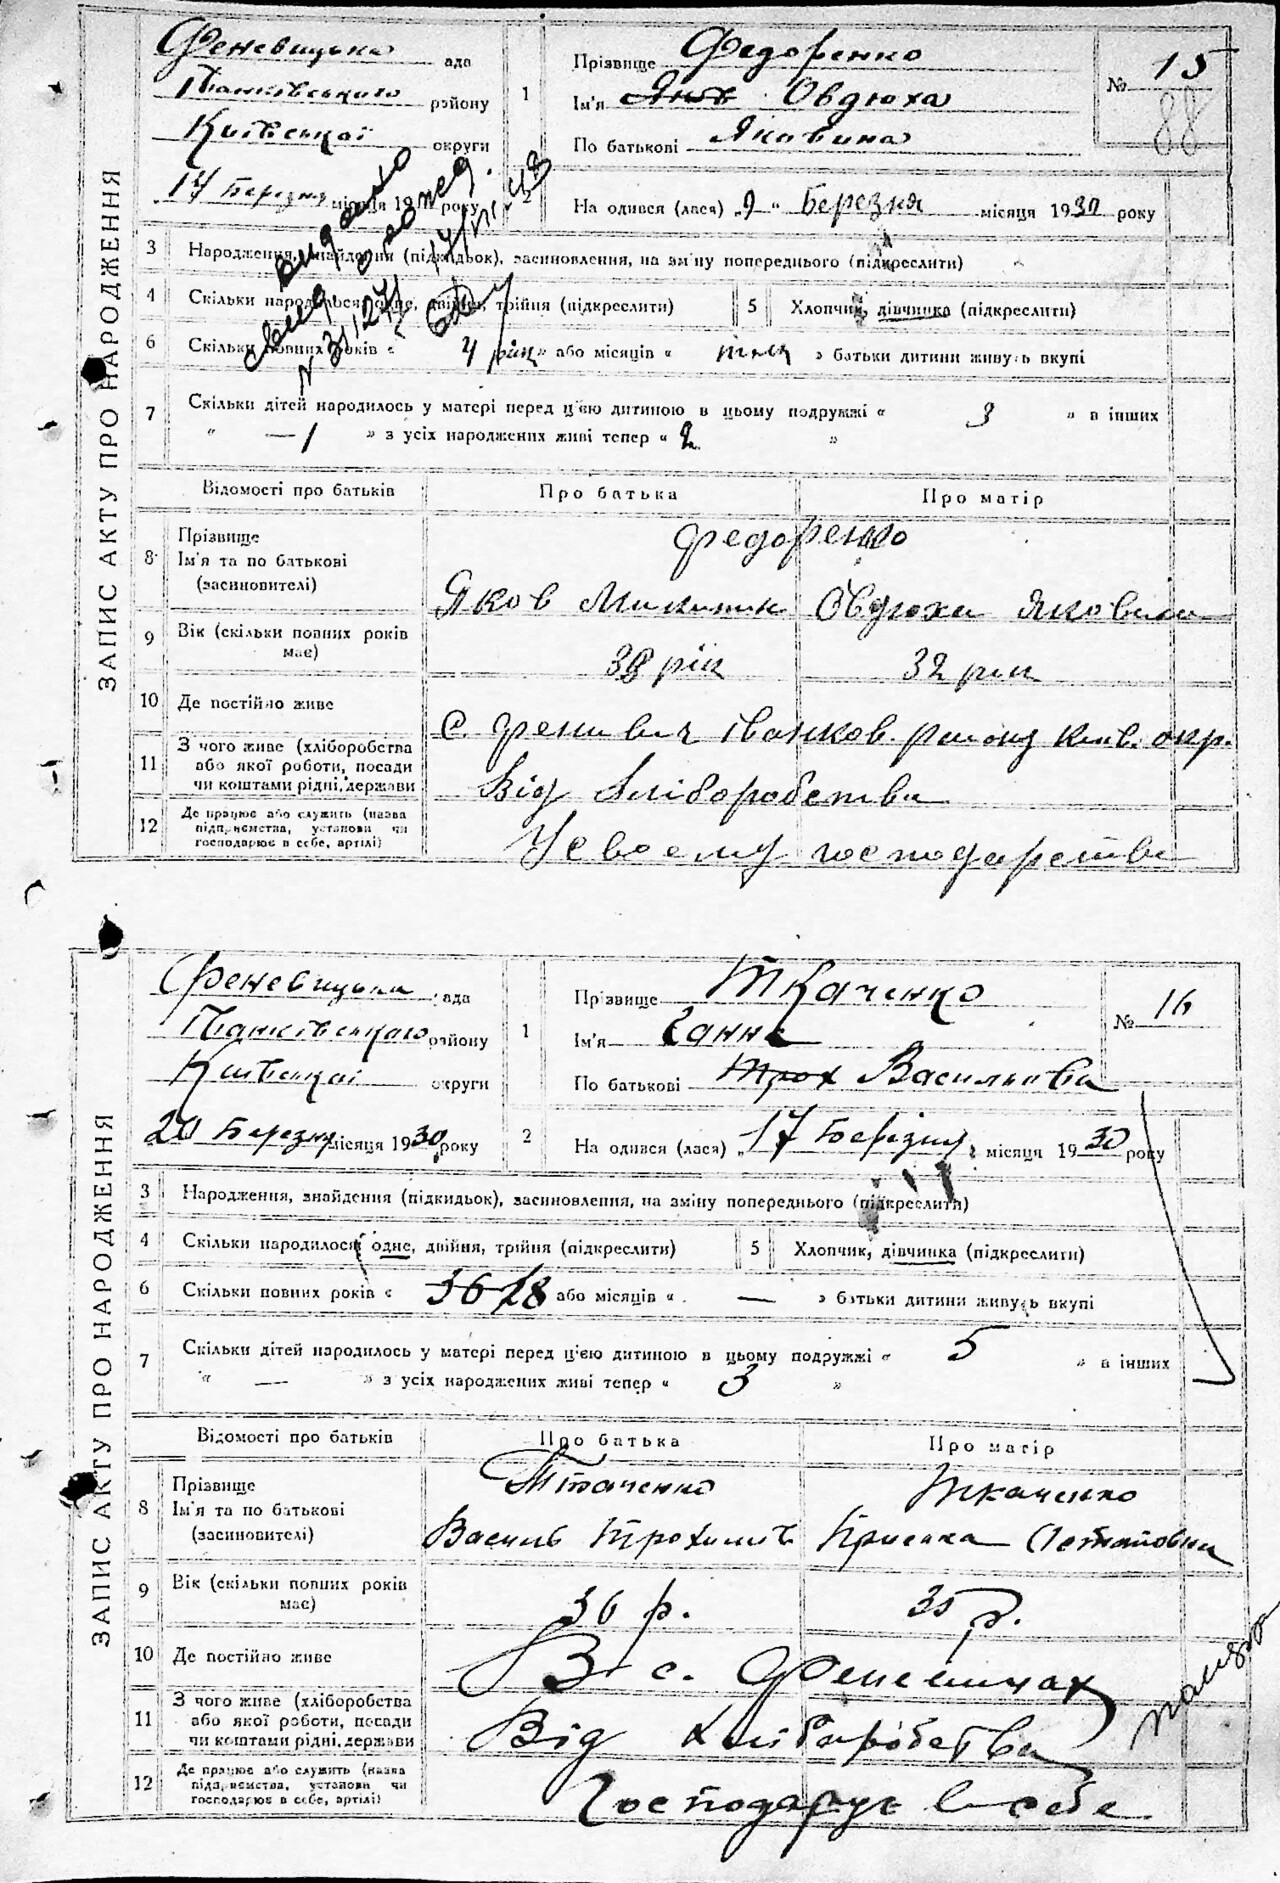 ЗАПИС АКТУ ПРО НАРОДЖЕННЯ
Феневицька рада
Іванківського району
Київської округи
17 Березня місяця 19 року
1
Прізвище Федоренко
Ім'я Яков Овдюха
По батькові Яковина
№ 15
88
2
На одився (лася) „9" Березня місяця 1930 року
3 Народження, знайдення (підкидьок), засиновлення, на зміну попереднього (підкреслити)
4 Скільки народилося одне, двійня, трійня (підкреслити)
5 Хлопчик, дівчинка (підкреслити)
6 Скільки повних років « 4 рік » або місяців « » батьки дитини живуть вкупі
7 Скільки дітей народилось у матері перед цією дитиною в цьому подружжі « 3 » в інших
« — 1 » з усіх народжених живі тепер « 2 »
Відомості про батьків Про батька Про матір
8 Прізвище
Ім'я та по батькові
(засиновителі)
Федоренко
Яков Микитин Овдюха Яковина
9 Вік (скільки повних років має) 38 рік 32 рік
10 Де постійно живе С. Феневич Іванков. району Київ. окр.
11 З чого живе (хліборобства або якої роботи, посади чи коштами рідні, держави Від хліборобства
12 Де працює або служить (назва підприємства, установи чи господарює в себе, артілі) У своему господарстві
ЗАПИС АКТУ ПРО НАРОДЖЕННЯ
Феневицька рада
Іванківського району
Київської округи
20 Березня місяця 1930 року
1
Прізвище Ткаченко
Ім'я Ганна
По батькові Трох Васильівна
№ 16
2
На одився (лася) „17 Березня місяця 1930 року
3 Народження, знайдення (підкидьок), засиновлення, на зміну попереднього (підкреслити)
4 Скільки народилося одне, двійня, трійня (підкреслити)
5 Хлопчик, дівчинка (підкреслити)
6 Скільки повних років « 36 18 або місяців « — » батьки дитини живуть вкупі
7 Скільки дітей народилось у матері перед цією дитиною в цьому подружжі « 5 » в інших
« — » з усіх народжених живі тепер « 3 »
Відомості про батьків Про батька Про матір
8 Прізвище
Ім'я та по батькові
(засиновителі)
Ткаченко Ткаченко
Василь Трохимів Приська Остаповна
9 Вік (скільки повних років має) 36 р. 35 р.
10 Де постійно живе В с. Феневичах
11 З чого живе (хліборобства або якої роботи, посади чи коштами рідні, держави Від хліборобства
12 Де працює або служить (назва підприємства, установи чи господарює в себе, артілі) Господарує в себе